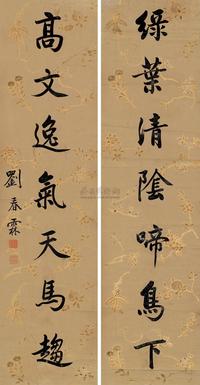 綠葉清陰啼鳥下
高文逸氣天馬趨
劉春霖